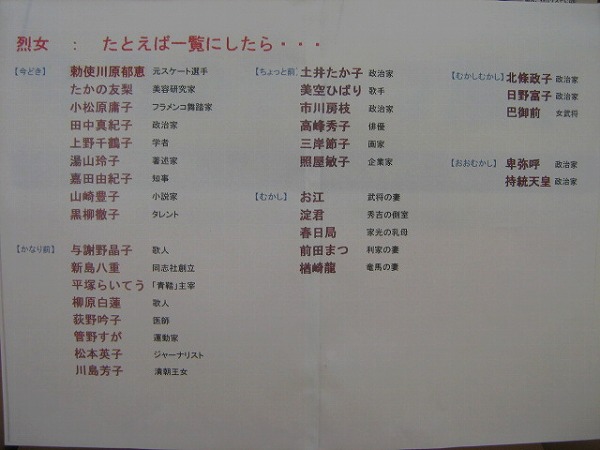 烈女 : たとえば一覧にしたら・・・
【今どき】 勅使川原郁恵 元スケート選手
たかの友梨 美容研究家
小松原庸子 フラメンコ舞踏家
田中真紀子 政治家
上野千鶴子 学者
湯山玲子 著述家
嘉田由紀子 知事
山崎豊子 小説家
黒柳徹子 タレント
【かなり前】 与謝野晶子 歌人
新島八重 同志社創立
平塚らいてう 「青鞜」主宰
柳原白蓮 歌人
荻野吟子 医師
管野すが 運動家
松本英子 ジャーナリスト
川島芳子 清朝王女
【ちょっと前】 土井たか子 政治家
美空ひばり 歌手
市川房枝 政治家
高峰秀子 俳優
三岸節子 画家
照屋敏子 企業家
【むかし】 お江 武将の妻
淀君 秀吉の側室
春日局 家光の乳母
前田まつ 利家の妻
楢崎龍 竜馬の妻
【むかしむかし】 北條政子 政治家
日野富子 政治家
巴御前 女武将
【おおむかし】 卑弥呼 政治家
持統天皇 政治家